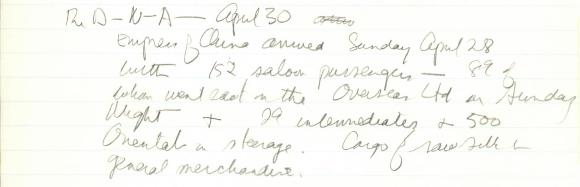 The D-N-A - April 30
Empress of China arrived Sunday April 28
with 152 saloon passengers - 89 of
whom went east on the Overseas Ltd on Sunday
Night + 29 intermediates + 500
Orientals in steerage. Cargo of raw silk &
general merchandise.